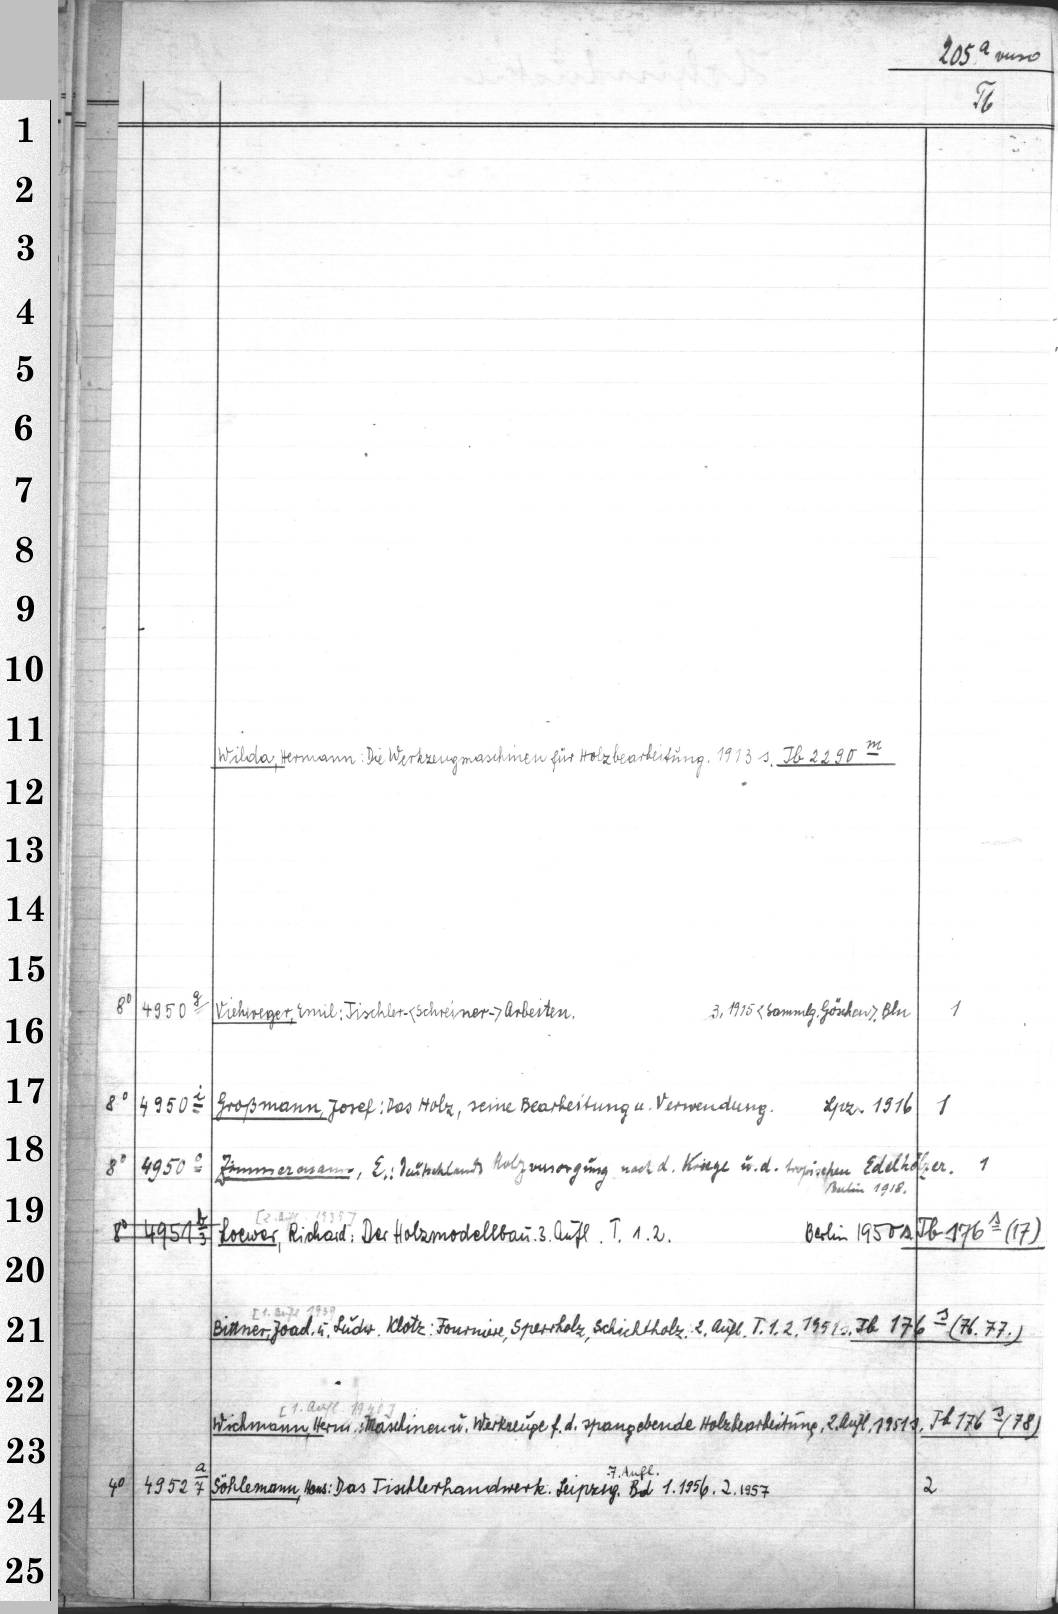 205 a verso
Tb
1
2
3
4
5
6
7
8
9
10
11
Wilda, Hermann: Die Werkzeugmaschinen für Holzbearbeitung. 1913 s. Tb 2290 m
12
13
14
15
8° 4950 g Viehweger, Emil: Tischler-<Schreiner-> Arbeiten. 3, 1915 <Sammlg. Göschen>. Bln 1
16
17
8° 4950 i Großmann, Josef: Das Holz, seine Bearbeitung u. Verwendung. Lpz. 1916 1
18
8° 4950 o Zimmermann, E.: Deutschlands Holzversorgung nach d. Kriege u. d. tropischen Edelhölzer. 1
Berlin 1918.
19
[2. Aufl. 1939]
8° 4951 Loewer, Richard: Der Holzmodellbau. 3. Aufl. T. 1.2. Berlin 1950 s Tb 176 s (17)
20
[1. Aufl 1939
21
Bittner, Joad. u. Ludw. Klotz: Furniere, Sperrholz, Schichtholz. 2. Aufl. T. 1.2. 1951 s. Tb 176 s (76. 77.)
22
[1. Aufl 1940]
Wichmann, Herm.: Maschinen u. Werkzeuge f. d. spangebende Holzbearbeitung. 2. Aufl. 1951 s. Tb 176 s (78)
23
7. Aufl.
4° 4952 a/7 Söhlemann, Hans: Das Tischlerhandwerk. Leipzig. Bd 1. 1956. 2. 1957 2
24
25